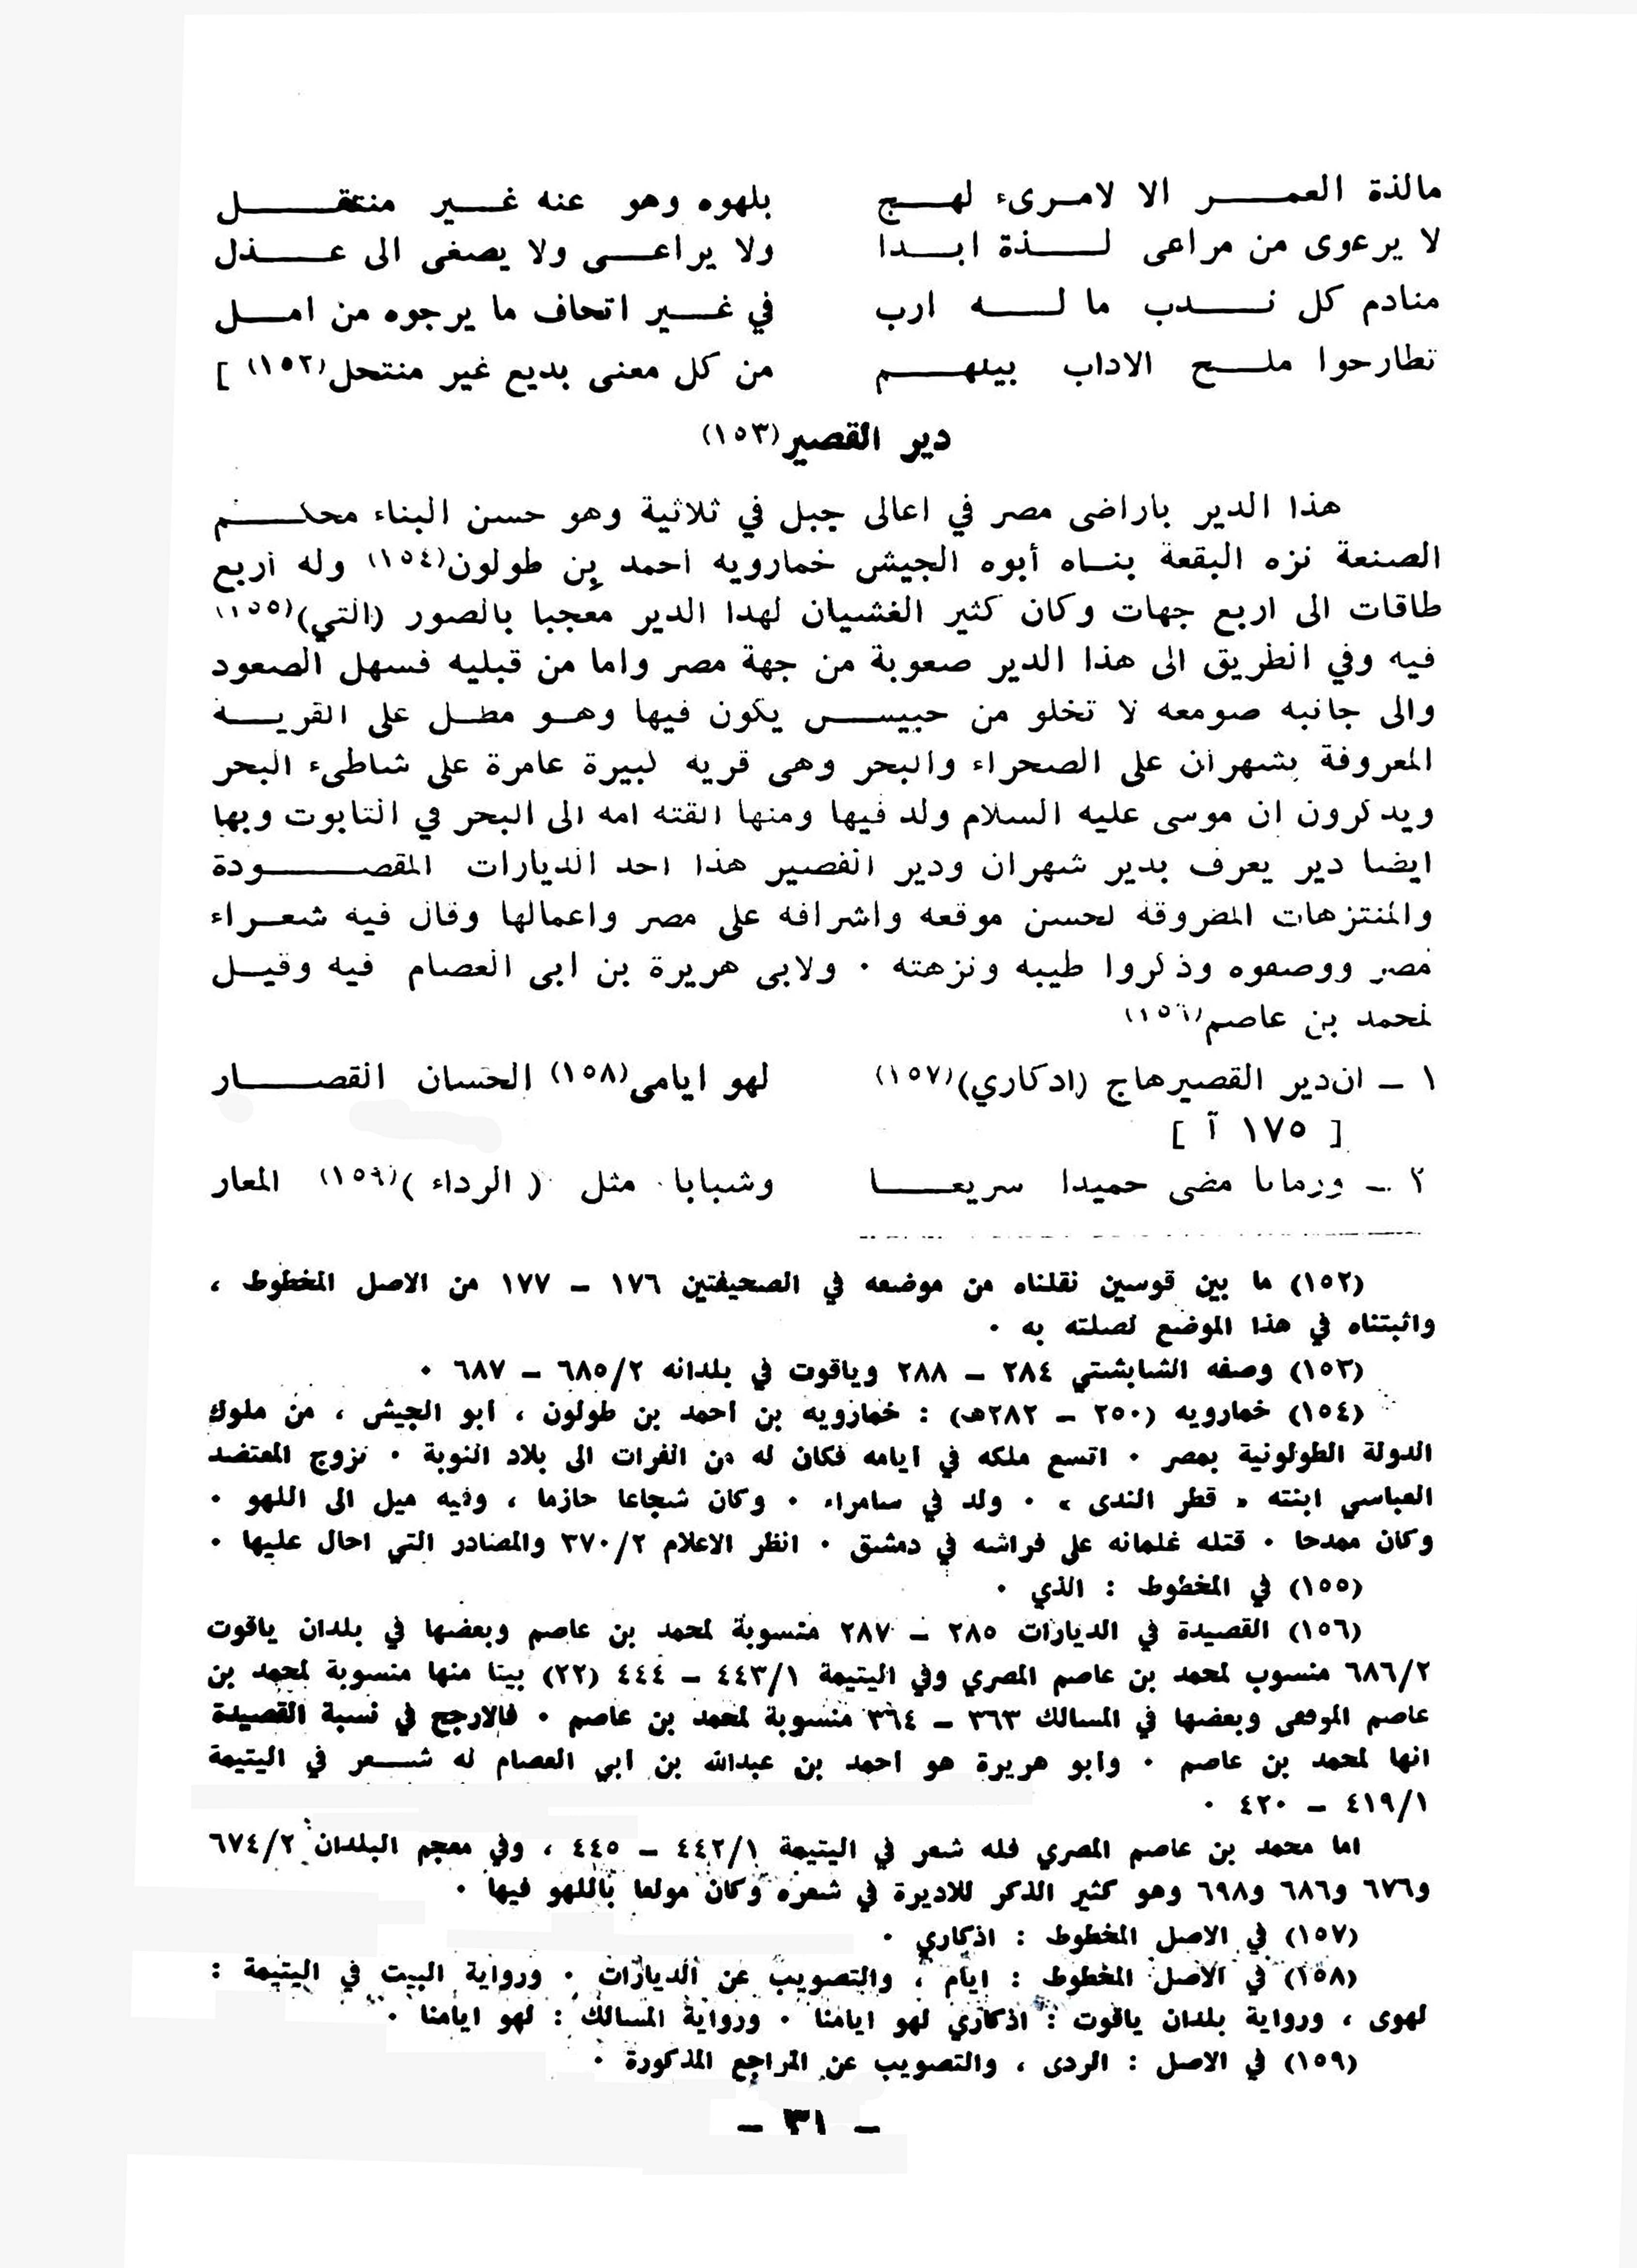 مالذة العمر الا لامرىء لهج بلهوه وهو عنه غير منتقل
لا يرعوى من مراعى لذة ابدا ولا يراعى ولا يصغى الى عذل
منادم كل ندب ما له ارب في غير اتحاف ما يرجوه من امل
تطارحوا ملح الاداب بينهم من كل معنى بديع غير منتحل(١٥٢) ]
دير القصير(١٥٣)
هذا الدير باراضى مصر في اعالى جبل في ثلاثية وهو حسن البناء محكم
الصنعة نزه البقعة بناه أبوه الجيش خمارويه احمد بن طولون(١٥٤) وله أربع
طاقات الى اربع جهات وكان كثير الغشيان لهدا الدير معجبا بالصور (التي)(١٥٥)
فيه وفي الطريق الى هذا الدير صعوبة من جهة مصر واما من قبليه فسهل الصعود
والى جانبه صومعه لا تخلو من حبيس يكون فيها وهو مطل على القرية
المعروفة بشهران على الصحراء والبحر وهى قريه كبيرة عامرة على شاطىء البحر
ويدكرون ان موسى عليه السلام ولد فيها ومنها القته امه الى البحر في التابوت وبها
ايضا دير يعرف بدير شهران ودير القصير هذا احد الديارات المقصودة
والمنتزهات المطروقة لحسن موقعه واشرافه على مصر واعمالها وقال فيه شعراء
مصر ووصفوه وذكروا طيبه ونزهته · ولابى هريرة بن ابى العصام فيه وقيل
لمحمد بن عاصم(١٥٦)
١ – ان دير القصير هاج (ادكاري)(١٥٧) لهو ايامى(١٥٨) الحسان القصار
[ ١٧٥ آ ]
٢ – وزمانا مضى حميدا سريعا وشبابا مثل ( الرداء )(١٥٩) المعار
(١٥٢) ما بين قوسين نقلناه من موضعه في الصحيفتين ١٧٦ – ١٧٧ من الاصل المخطوط ،
واثبتناه في هذا الموضع لصلته به ·
(١٥٣) وصفه الشابشتي ٢٨٤ – ٢٨٨ وياقوت في بلدانه ٦٨٥/٢ – ٦٨٧ ·
(١٥٤) خمارويه (٢٥٠ – ٢٨٢هـ) : خمارويه بن احمد بن طولون ، ابو الجيش ، من ملوك
الدولة الطولونية بمصر · اتسع ملكه في ايامه فكان له من الفرات الى بلاد النوبة · تزوج المعتضد
العباسي ابنته « قطر الندى » · ولد في سامراء · وكان شجاعا حازما ، وفيه ميل الى اللهو ·
وكان ممدحا · قتله غلمانه على فراشه في دمشق · انظر الاعلام ٣٧٠/٢ والمصادر التي احال عليها ·
(١٥٥) في المخطوط : الذي ·
(١٥٦) القصيدة في الديارات ٢٨٥ – ٢٨٧ منسوبة لمحمد بن عاصم وبعضها في بلدان ياقوت
٦٨٦/٢ منسوب لمحمد بن عاصم المصري وفي اليتيمة ٤٤٣/١ – ٤٤٤ (٢٢) بيتا منها منسوبة لمحمد بن
عاصم الموقعى وبعضها في المسالك ٣٦٣ – ٣٦٤ منسوبة لمحمد بن عاصم · فالارجح في نسبة القصيدة
انها لمحمد بن عاصم · وابو هريرة هو احمد بن عبدالله بن ابي العصام له شعر في اليتيمة
٤١٩/١ – ٤٢٠ ·
اما محمد بن عاصم المصري فله شعر في اليتيمة ٤٤٢/١ – ٤٤٥ ، وفي معجم البلدان ٦٧٤/٢
و٦٧٦ و٦٨٦ و٦٩٨ وهو كثير الذكر للاديرة في شعره وكان مولعا باللهو فيها ·
(١٥٧) في الاصل المخطوط : اذكاري ·
(١٥٨) في الاصل المخطوط : ايام ، والتصويب عن الديارات · ورواية البيت في اليتيمة :
لهوى ، ورواية بلدان ياقوت : اذكاري لهو ايامنا · ورواية المسالك : لهو ايامنا ·
(١٥٩) في الاصل : الردى ، والتصويب عن المراجع المذكورة ·
– ٣١ –